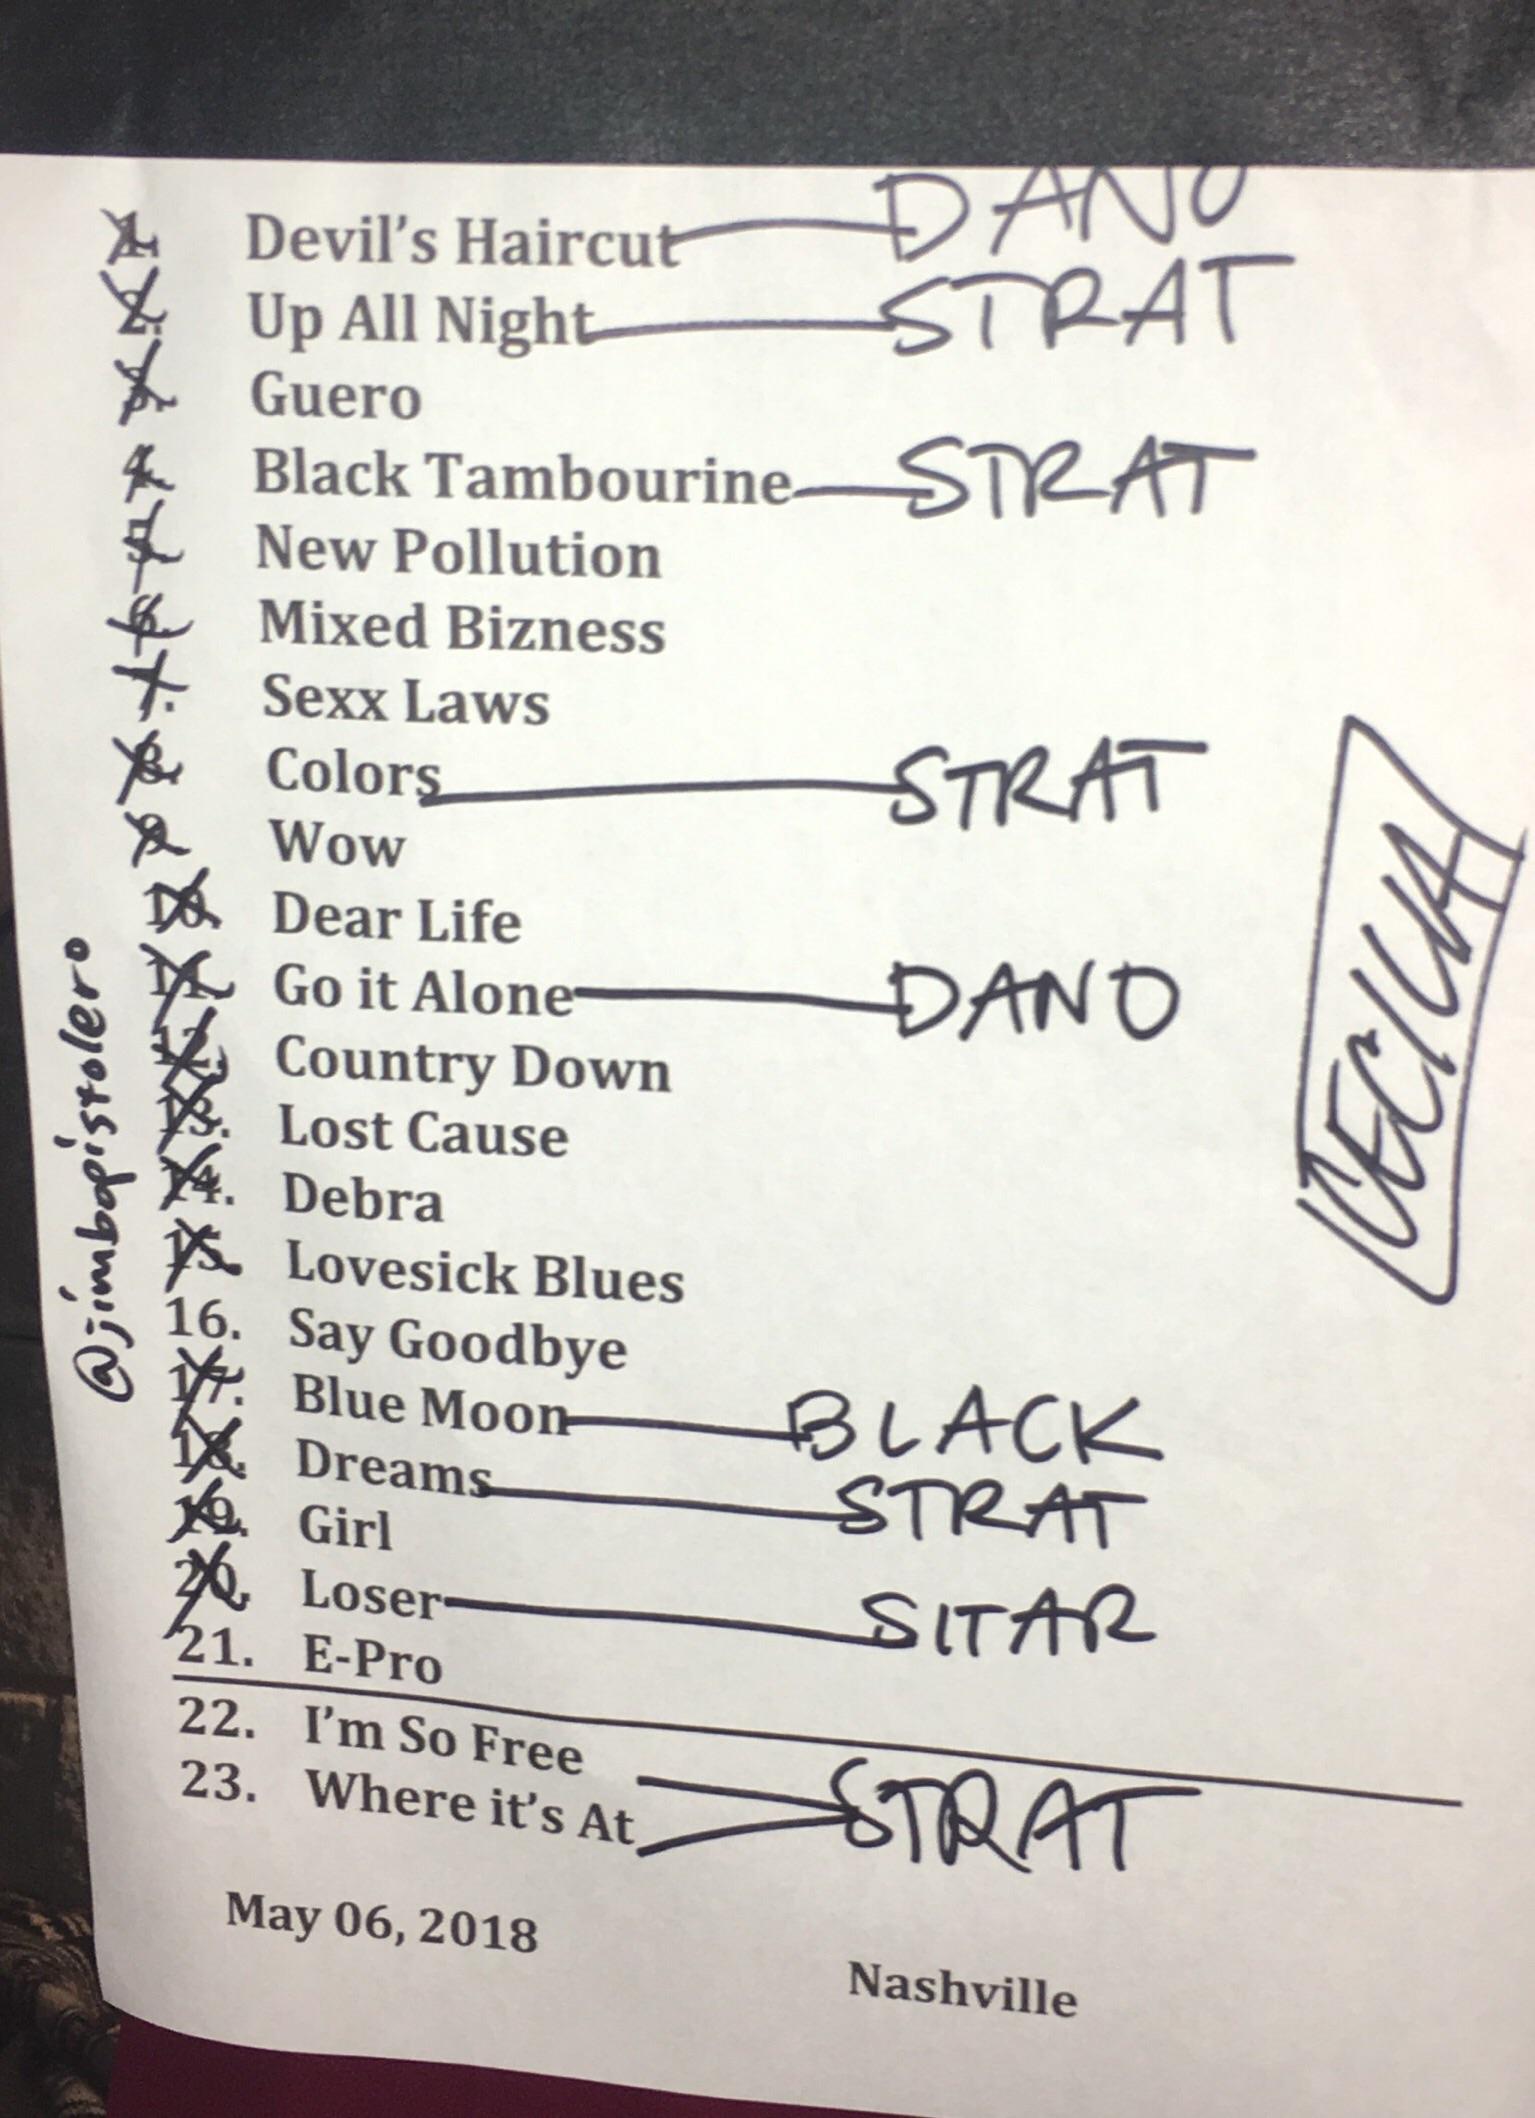 1. Devil's Haircut DANO
2. Up All Night STRAT
3. Guero
4. Black Tambourine STRAT
5. New Pollution
6. Mixed Bizness
7. Sexx Laws
8. Colors STRAT
9. Wow
10. Dear Life
11. Go it Alone DANO
12. Country Down
13. Lost Cause
14. Debra
15. Lovesick Blues
16. Say Goodbye
17. Blue Moon BLACK
18. Dreams STRAT
19. Girl
20. Loser SITAR
21. E-Pro
22. I'm So Free
23. Where it's At STRAT
May 06, 2018
Nashville
@jimbopistolero